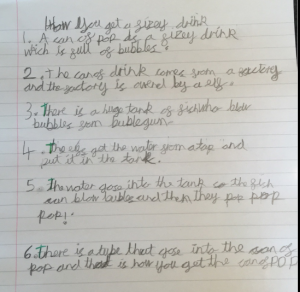 How you get a fizzy drink
1. A can of pop is a fizzy drink
wich is full of bubbles.
2. The can of drink comes from a factory
and the factory is owned by a elf.
3. There is a huge tank of fish who blow
bubbles from bublegum.
4. The elfs get the water from a tap and
put it in the tank.
5. The water gose into the tank so the fish
can blow bubles and then they pop pop
pop!
6. There is a type that gose into the can of
pop and that is how you get the can of POP